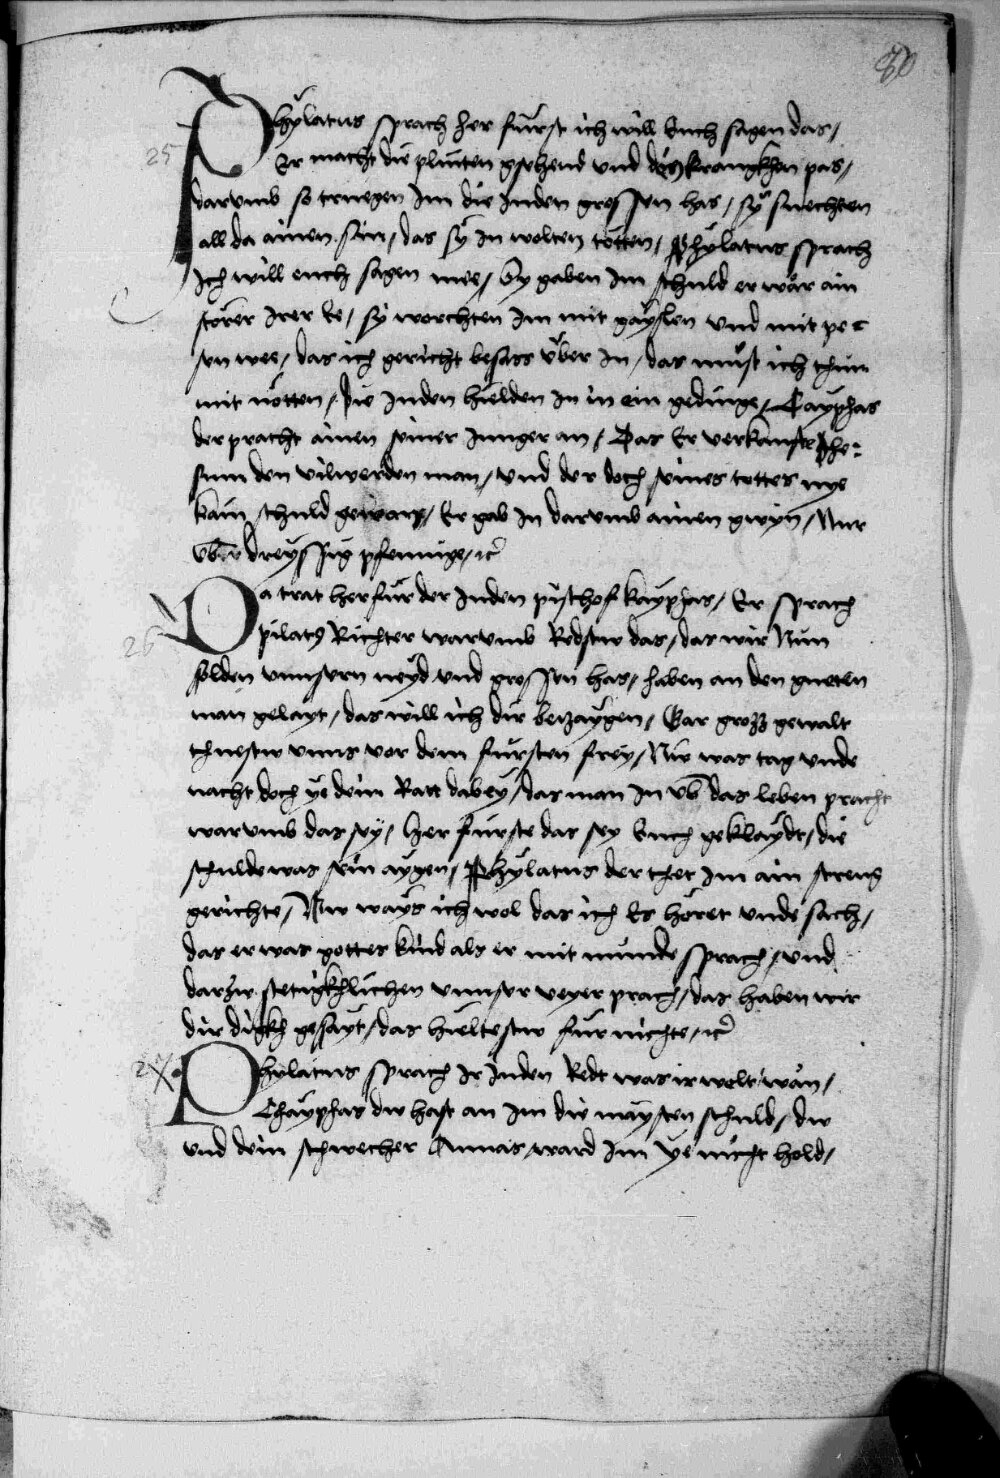 80
25
Phÿlatus sprach her fürst ich will Euch sagen das /
Er macht die plinten gsehend vnd die krangkhen pas /
darvmb so truegen Im die Juden grossen has / sÿ suechten
all da ainen sin / das sÿ in wolten tötten / Phÿlatus sprach
Ich will euch sagen mee / Sy gaben im schuld er wär ain
störer Irer Ee / sÿ worchten Im mit gaÿslen vnd mit pe
sen wee / das ich gericht besass über In / das muest ich thun
mit nötten / Die Juden hielden In in ein gedinge / Caÿphas
der pracht ainen seiner Junger an / Das Er verkaufte Jhe:
sum den vilwerden man / vnd der doch seines tottes nye
kain schuld gewan / Er gab In darvmb ainen gwyn / Nur
vber dreÿssig pfenninge / etc
26
Da trat herfür der Juden pischof kaÿphas / Er sprach
pilatus Richter warvmb Redstw das / das wir Nun
solden vnnsern neÿd vnd grossen has / haben an den gueten
man gelayt / das will ich dir beizaÿgen / Gar grosz gewalt
thuestw vnns vor dem fürsten freÿ / Nw was tag vnde
nacht doch ye dein Ratt dabeÿ / das man In vmb das leben pracht
warvmb das seÿ / her fürste das seÿ Euch geklaÿdt / die
schulde was sein aÿgen / Phÿlatus der thet Im ain streng
gerichte / Nw ways ich wol das ich Es höret vnde sach /
das er was gottes kind als er mit munde sprach / vnd
darzw stetigkhlichen vnnser veyer prach / das haben wir
dir dickh gesayt / das hieltestw für nichte / etc
27
Phÿlatus sprach Ir Juden Redt was ir welt wän /
Chaÿphas dw hast an im die maÿsten schuld / dw
vnd dein schwecher Annas / ward Im ÿe nicht hold /